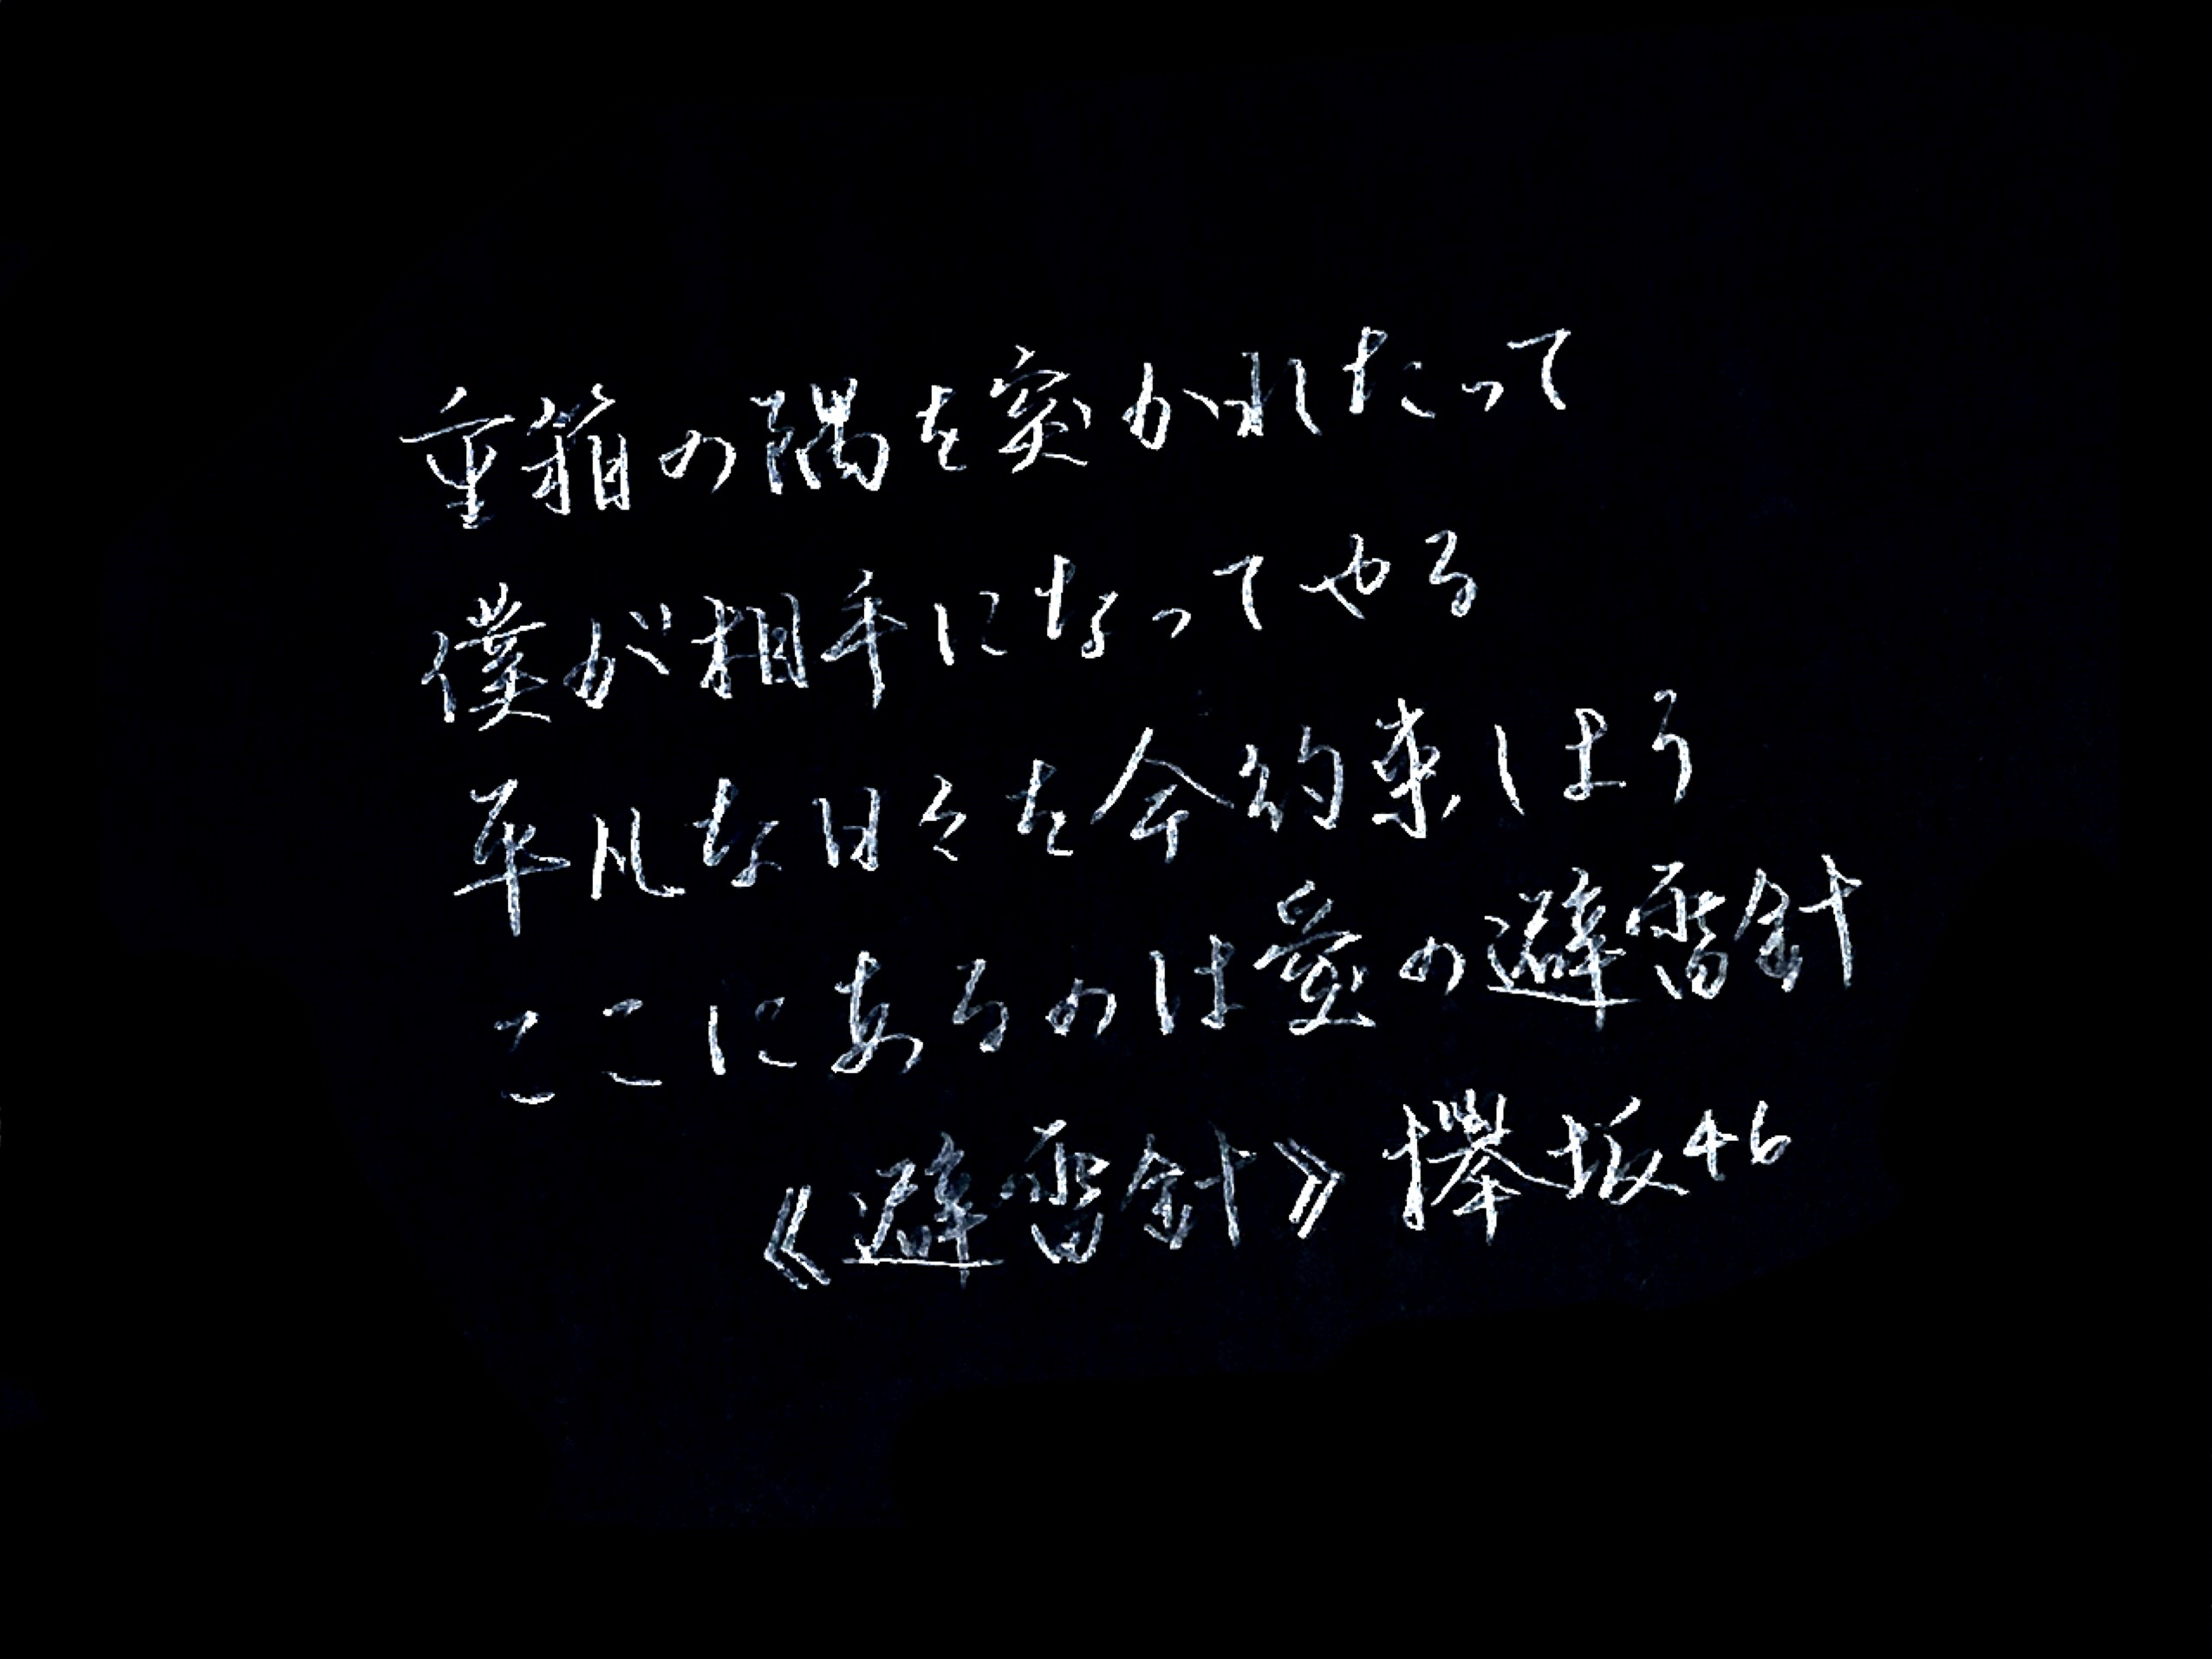 重箱の隅を突かれたって
僕が相手になってやる
平凡な日々を今約束しよう
ここにあるのは愛の避雷針
《避雷針》欅坂46